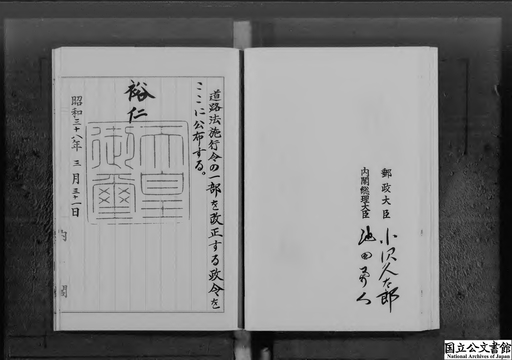 郵政大臣 小沢久太郎
内閣総理大臣 池田勇人
道路法施行令の一部を改正する政令を
ここに公布する。
裕仁
天皇
御璽
昭和三十八年三月三十一日
内閣
国立公文書館
National Archives of Japan